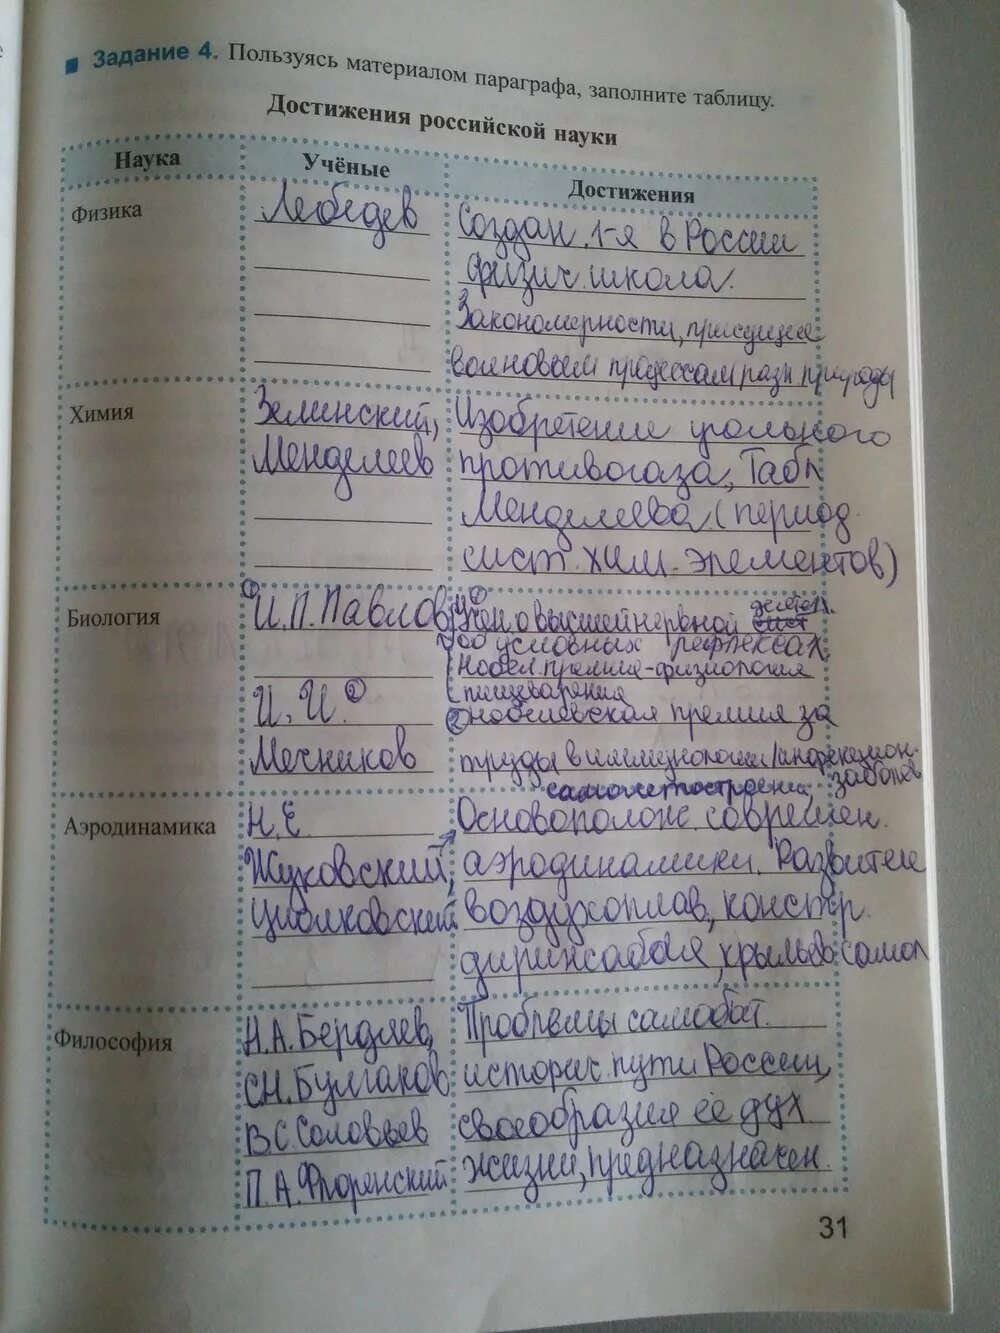 Задание 4. Пользуясь материалом параграфа, заполните таблицу.
Достижения российской науки
Наука Учёные Достижения
Физика Лебедев Создан. 1-я в России
физич. школа.
Закономерности, присущие
волновым процессам разн. природы
Химия Зелинский, Изобретение угольного
Менделеев противогаза, Табл
Менделеева (период.
сист. хим. элементов)
Биология ① И.П. Павлов ① Учен. о высшей нервной деятел.
об условных рефлексах
Нобел. премия - физиология
пищеварения
И. И. ② ② нобелевская премия за
Мечников труды в иммунологии /инфекцион.
заболев
самолетостроени,
Аэродинамика Н.Е Основополож. современ.
Жуковский, аэродинамики. Развитие
Циолковский воздухоплав, констр.
дирижабля, крыльев самол
Философия Н.А. Бердяев, Проблемы самобыт.
С.Н. Булгаков историч. пути России,
В.С. Соловьев своеобразия её дух
П.А. Флоренский жизни, предназначен.
31